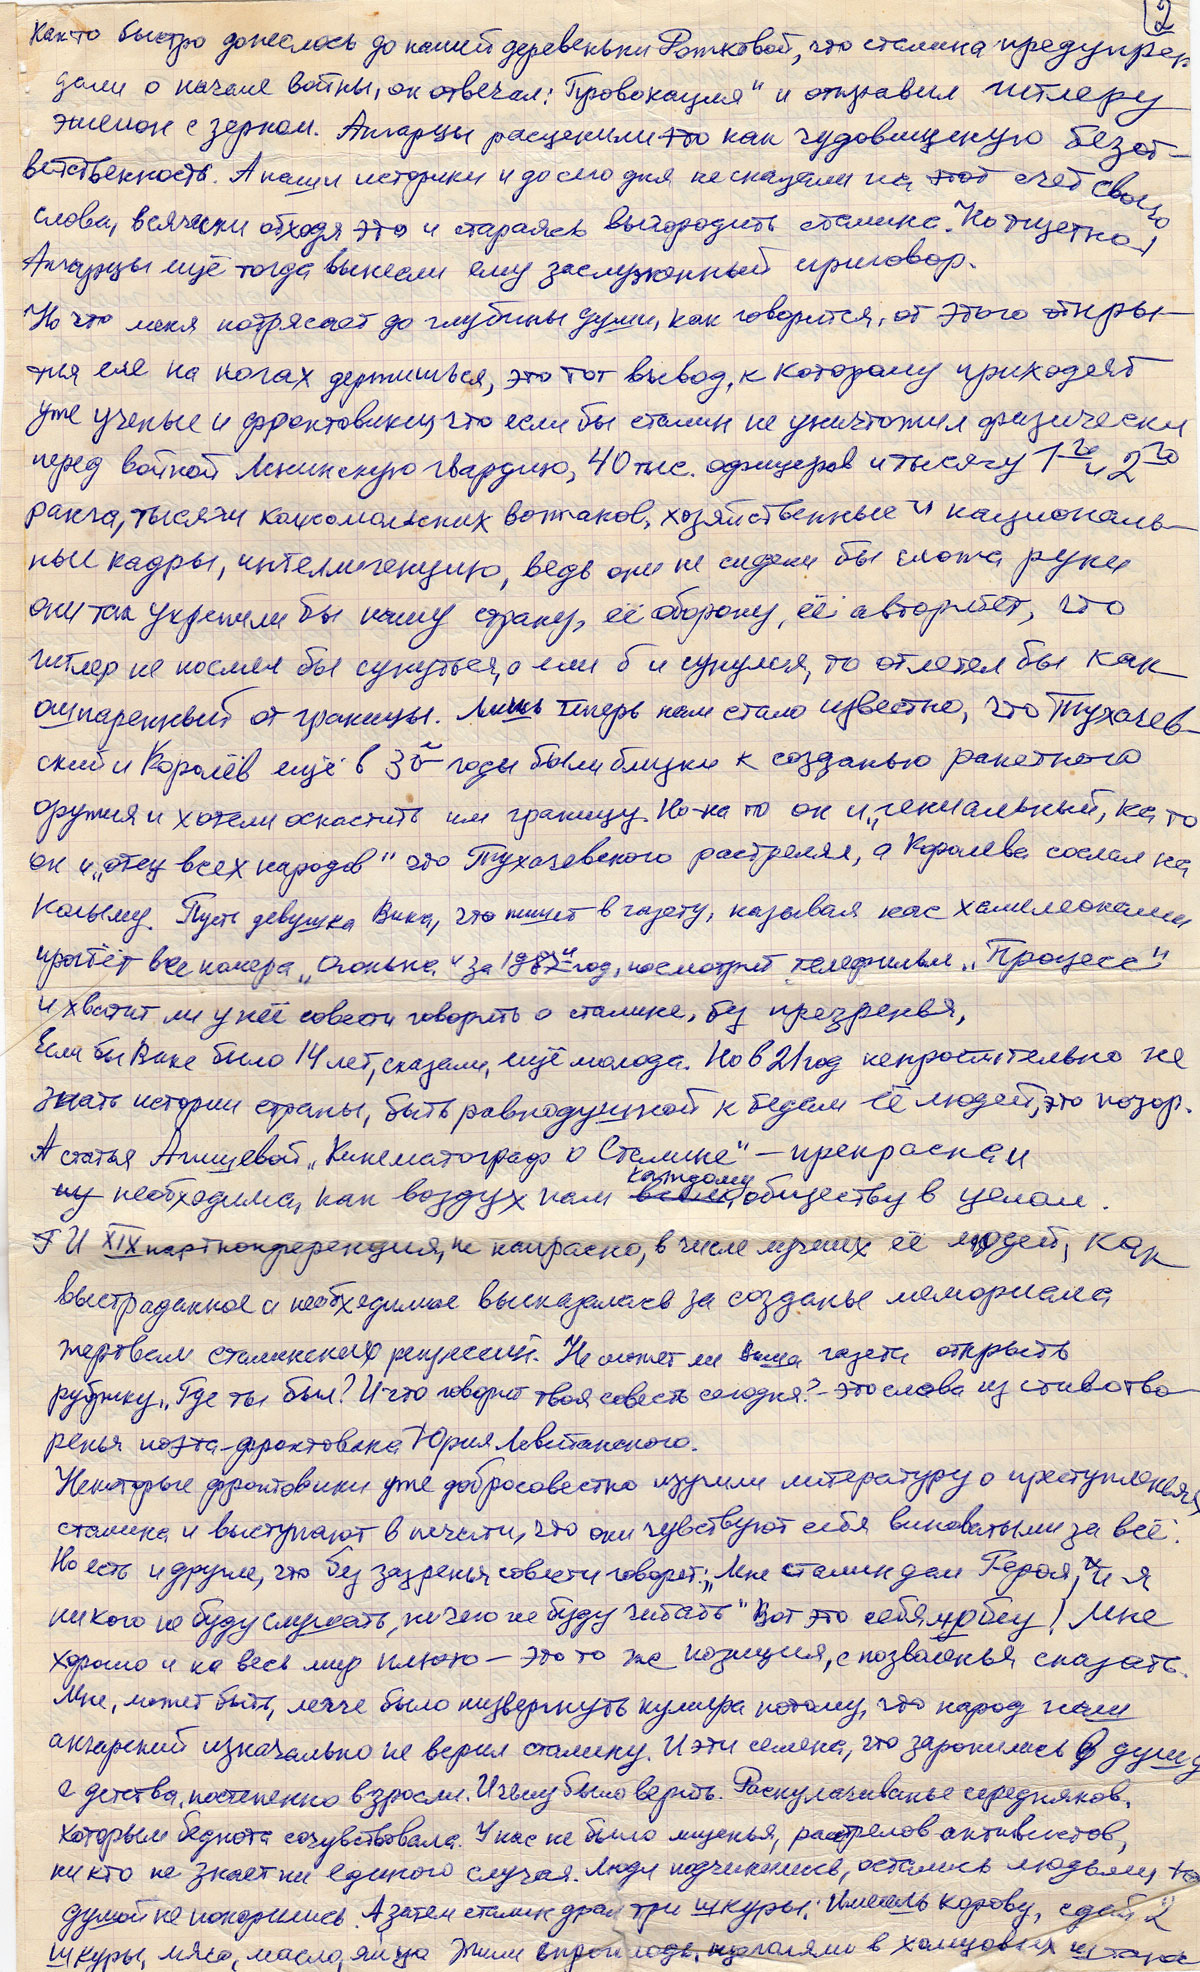 2
Как то быстро донеслось до нашей деревеньки Рожковой, что сталина предупреж
дали о начале войны, он отвечал: "Провокация" и отправил гитлеру
эшелон с зерном. Ангарцы расценили это как чудовищную безот-
ветственность. А наши историки и до сего дня не сказали на этот счёт своего
слова, всячески обходя это и стараясь выгородить сталина. Но тщетно!
Ангарцы ещё тогда вынесли ему заслуженный приговор.
Но что меня потрясает до глубины души, как говорится, от этого откры-
тья еле на ногах держишься, это тот вывод, к которому приходят
уже ученые и фронтовики, что если бы сталин не уничтожил физически
перед войной Ленинскую гвардию, 40 тыс. офицеров и тысячу 1го и 2го
ранга, тысячи комсомольских вожаков, хозяйственные и националь-
ные кадры, интеллигенцию, ведь они не сидели бы сложа руки
они так укрепили бы нашу страну, её оборону, её авторитет, что
гитлер не посмел бы сунуться, а если б и сунулся, то отлетел бы как
ошпаренный от границы. Лишь теперь нам стало известно, что Тухачев-
ский и Королёв ещё в 30е годы были близки к созданью ракетного
оружия и хотели оснастить им границу. Но на то он и "гениальный, на то
он и "отец всех народов" что Тухачевского растрелял, а Королева сослал на
Колыму. Пусть девушка Вика, что пишет в газету, называя нас хамелеонами
прочтёт все номера "Огонька" за 1987й год, посмотрит телефильм "Процесс"
и хватит ли у неё совести говорить о сталине, без презренья,
Если бы Вике было 14 лет, сказали, ещё молода. Но в 21 год непростительно не
знать истории страны, быть равнодушной к бедам её людей, это позор.
А статья Агишевой "Кинематограф о Сталине" – прекрасна и
необходима, как воздух нам каждому, обществу в целом.
И XIX партконференция, не напрасно, в числе лучших её людей, как
выстраданное и необходимое высказалась за созданье мемориала
жертвам сталинских репрессий. Не может ли Ваша газета открыть
рубрику "Где ты был? И что говорит твоя совесть сегодня? – это слова из стихотво-
ренья поэта-фронтовика Юрия Левитанского.
Некоторые фронтовики уже добросовестно изучили литературу о преступленьях
сталина и выступают в печати, что они чувствуют себя виноватыми за всё.
Но есть и другие, что без зазренья совести говорят: "Мне сталин дал Героя, и я
никого не буду слушать, ничего не буду читать" Вот это себялюбец! Мне
хорошо и на весь мир плюю – это то же позиция, с позволенья сказать.
Мне, может быть, легче было низвергнуть кумира потому, что народ наш
ангарский изначально не верил сталину. И эти семена, что заронились в душу
с детства, постепенно взросли. И чему было верить. Раскулачиванье середняков,
которым беднота сочувствовала. У нас не было мщенья, расстрелов активистов,
никто не знает ни единого случая. Люди подчинились, остались людьми, но
душой не покорились. А затем сталин драл три шкуры: Имеешь корову, сдай 2
шкуры, мясо, масло, яйца Жили впроголодь, щеголяли в холщовых штанах